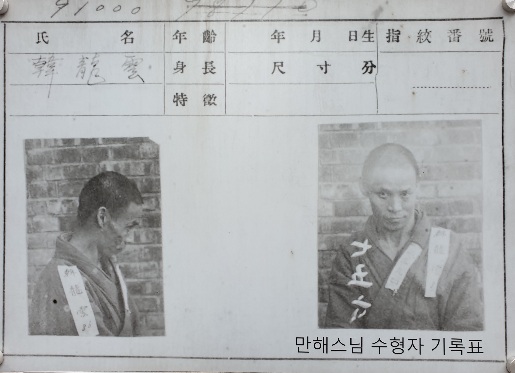 91000
氏 名 年 齡 年 月 日生 指 紋 番 號
韓 龍 雲 身 長 尺 寸 分
特 徵
韓 龍 雲
韓 龍
만해스님 수형자 기록표